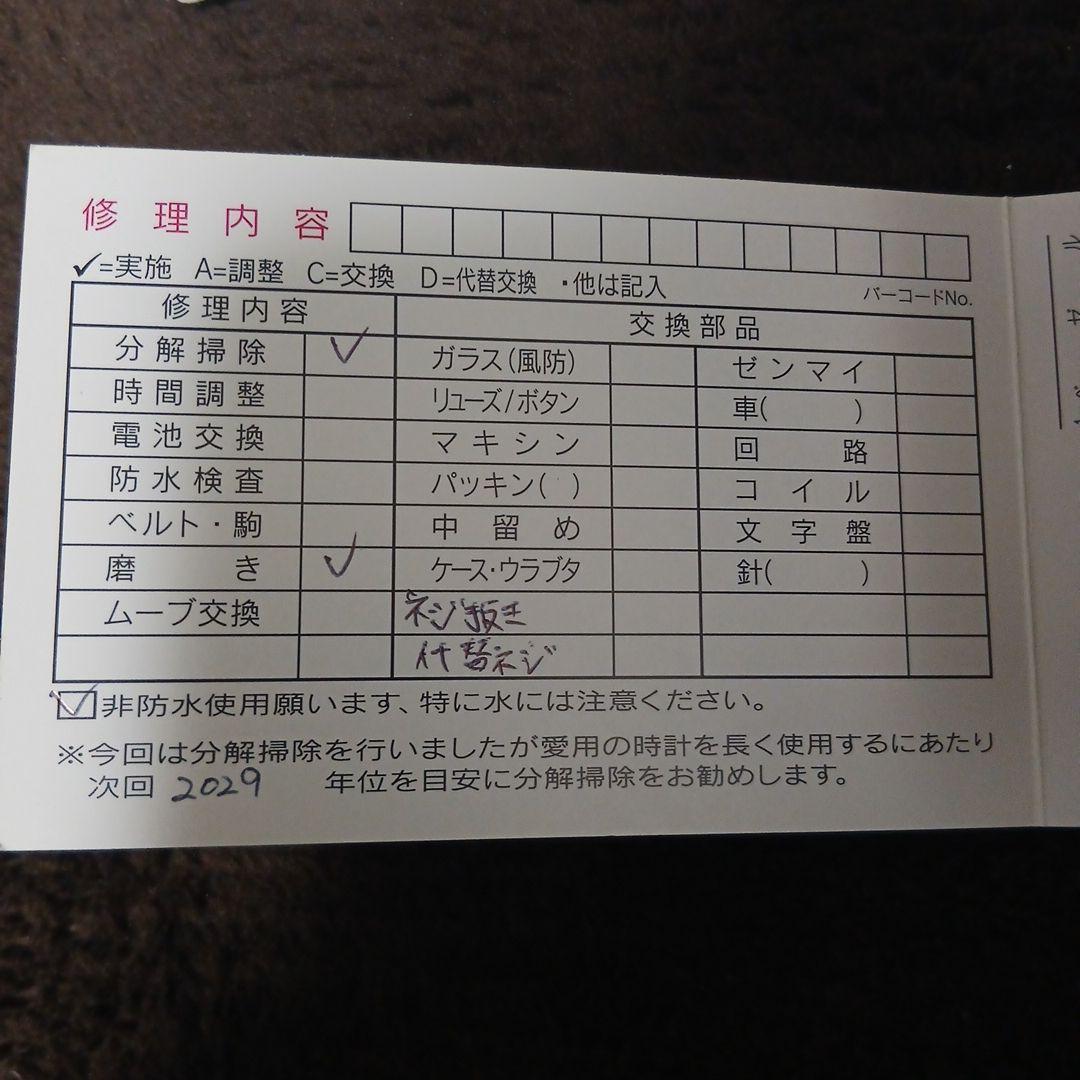 修理内容
✓=実施 A=調整 C=交換 D=代替交換 ・他は記入
バーコードNo.
修理内容 交換部品
分解掃除 ✓ ガラス(風防) ゼンマイ
時間調整 リューズ/ボタン 車( )
電池交換 マキシン 回路
防水検査 パッキン( ) コイル
ベルト・駒 中留め 文字盤
磨き ✓ ケース・ウラブタ 針( )
ムーブ交換 ネジ抜き
代替ネジ
☑非防水使用願います、特に水には注意ください。
※今回は分解掃除を行いましたが愛用の時計を長く使用するにあたり
次回 2029 年位を目安に分解掃除をお勧めします。